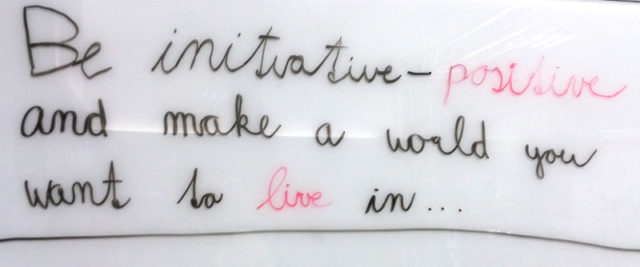 Be initiative-positive
and make a world you
want to live in...